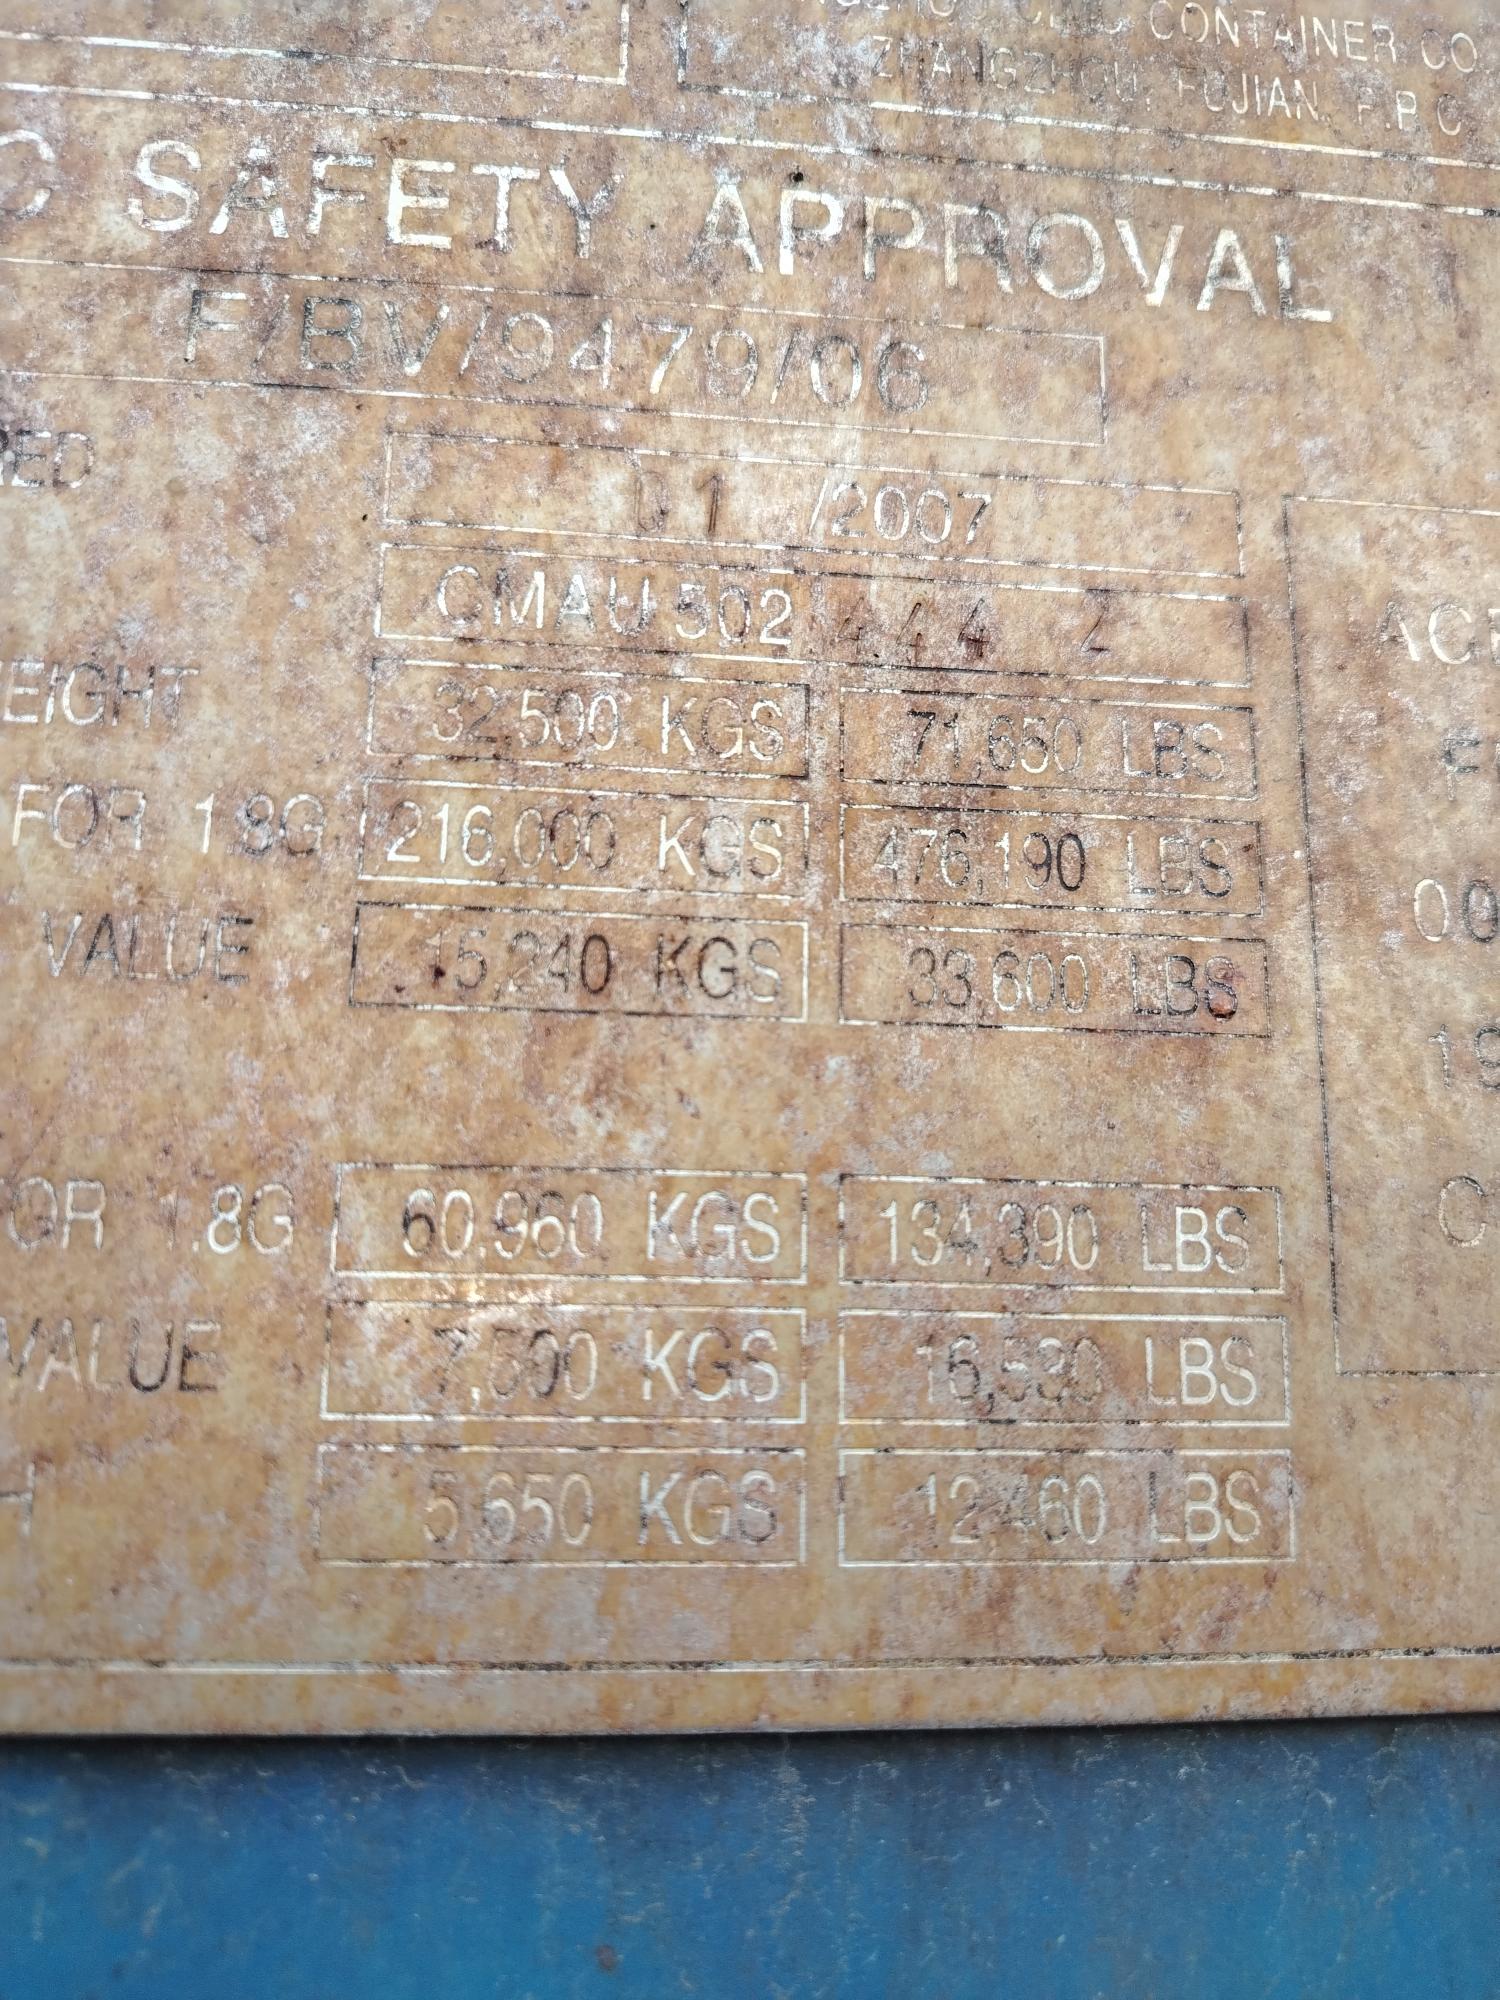 CONTAINER CO.
ZHANGZHOU, FUJIAN, P.R.C
C SAFETY APPROVAL
F/BV/9479/06
RED 01 /2007
CMAU 502 444
EIGHT 32,500 KGS 71,650 LBS
FOR 1.8G 216,000 KGS 476,190 LBS
VALUE 15,240 KGS 33,600 LBS
OR 1.8G 60,960 KGS 134,390 LBS
VALUE 7,500 KGS 16,530 LBS
H 5,650 KGS 12,460 LBS